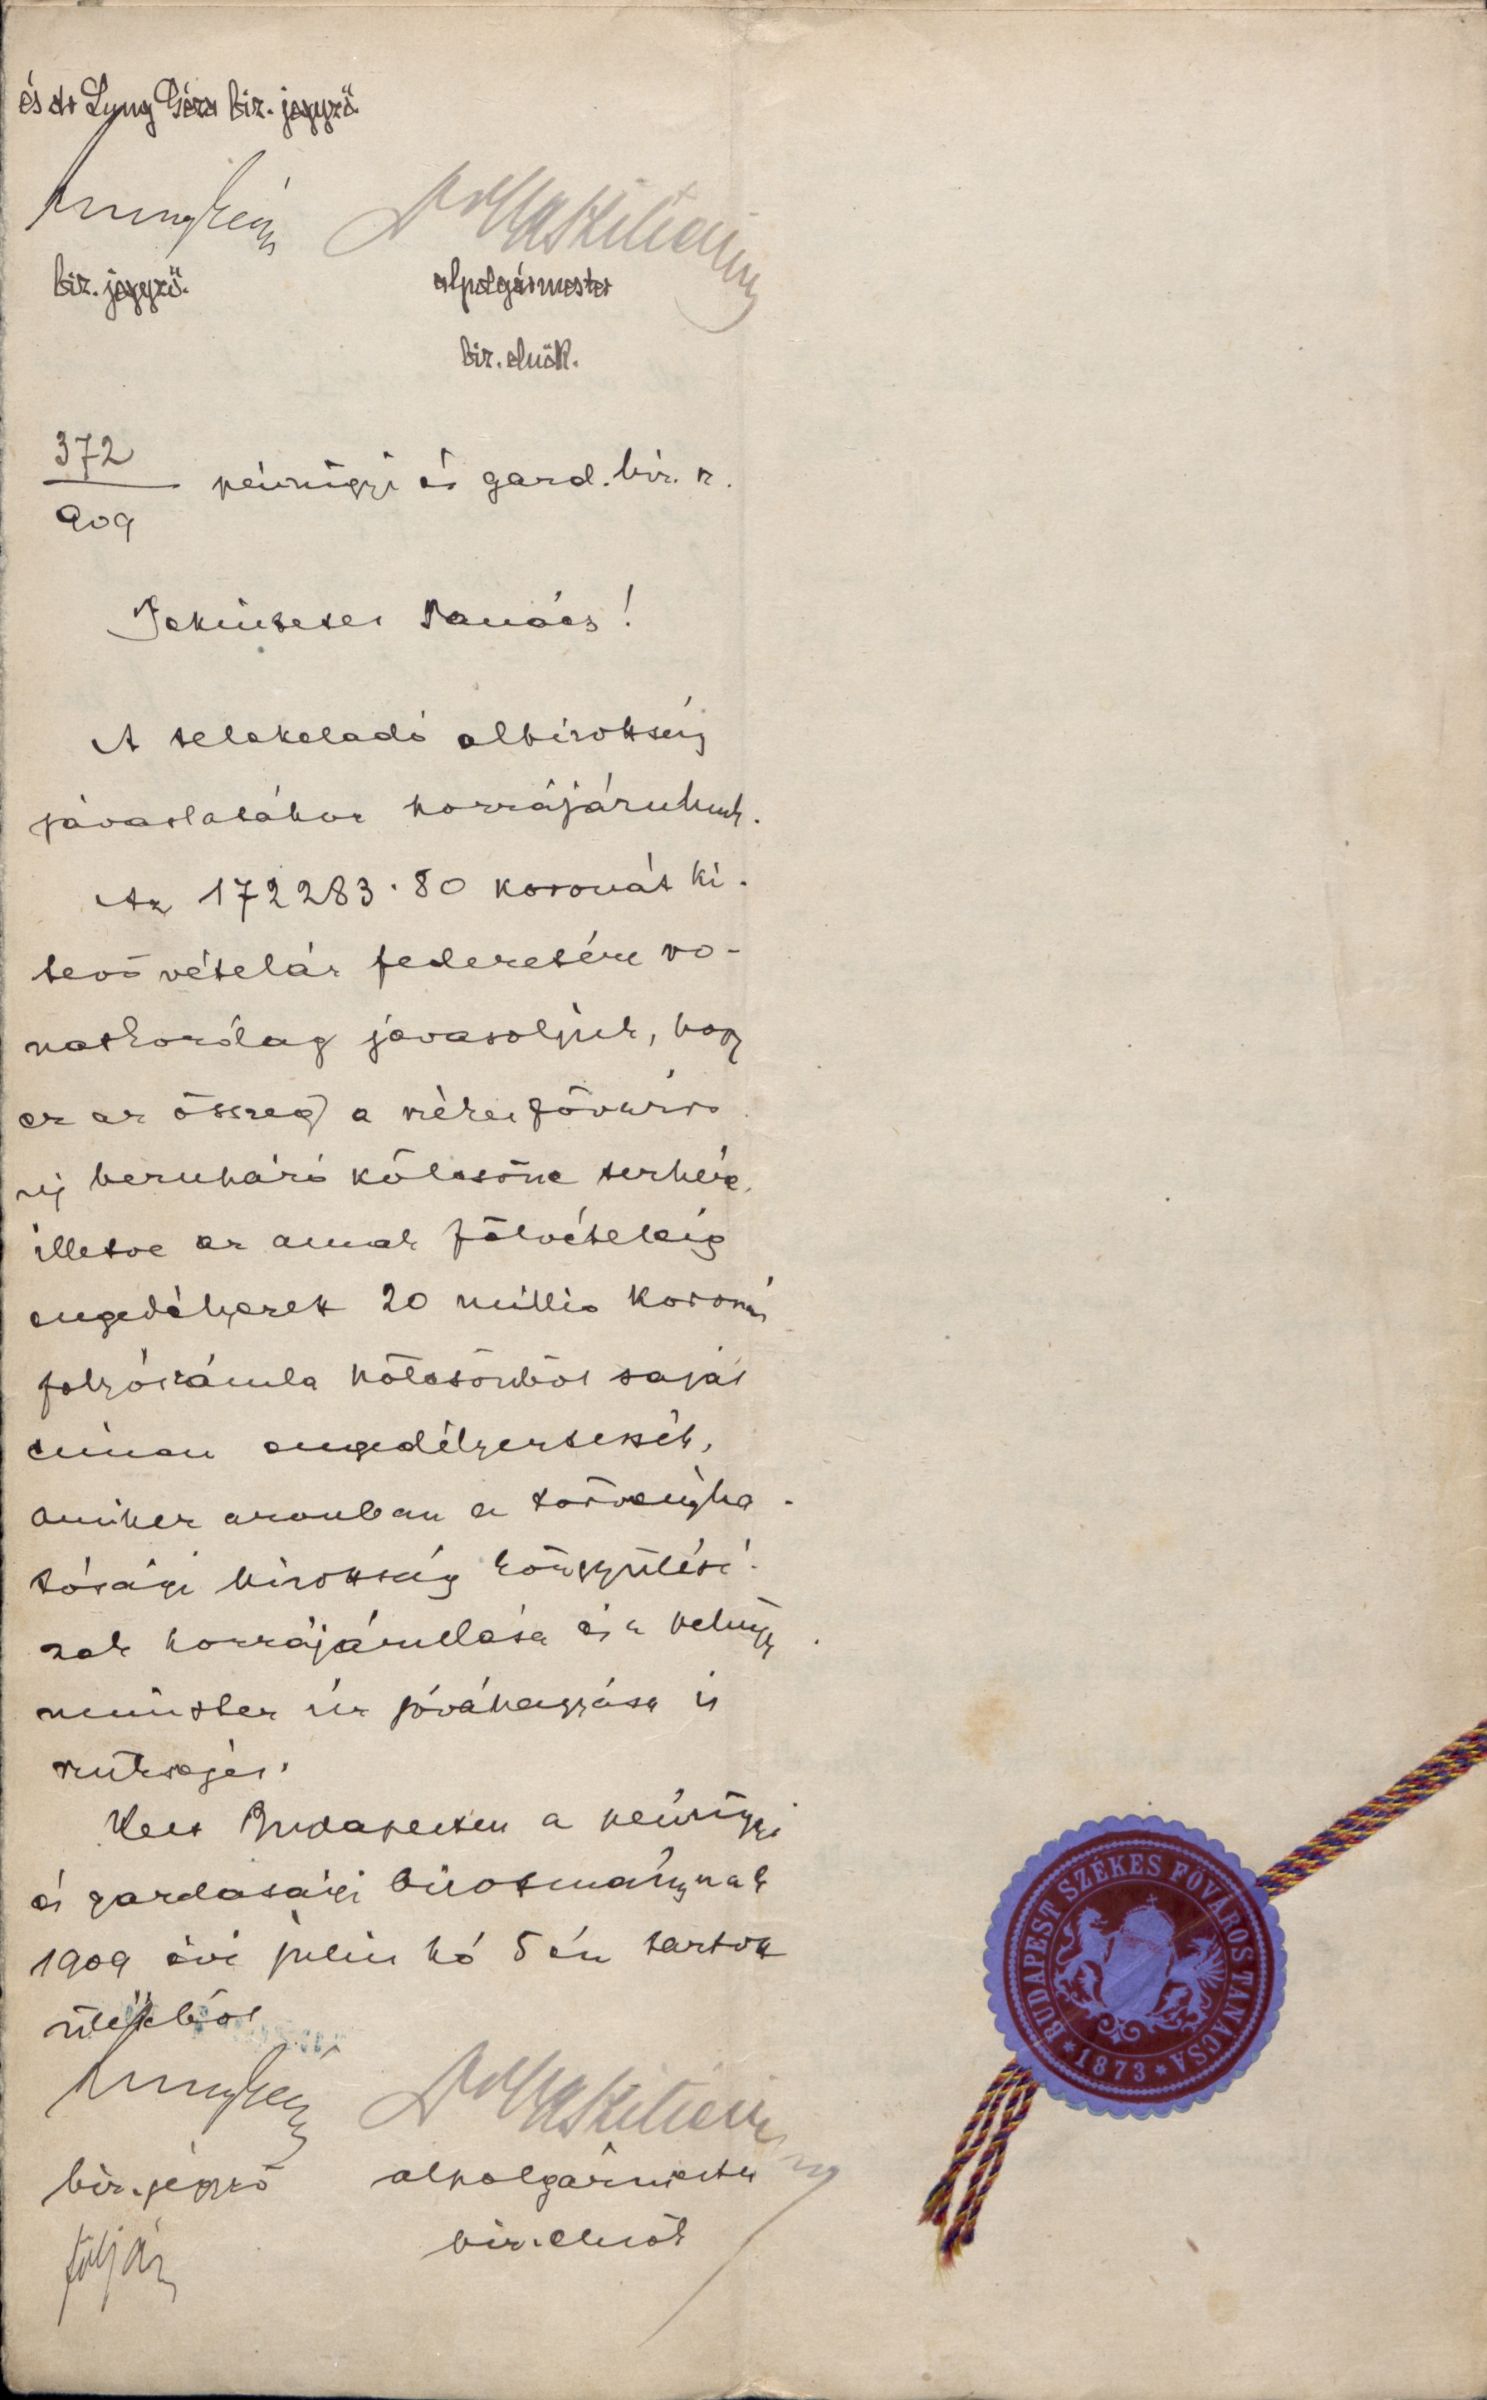 és dr Lung Géza biz. jegyző
Lung Géza
biz. jegyző.
alpolgármester
biz. elnök.
372
909
pénzügyi és gazd. biz. n.
Tekintetes Tanács!
A telekeladó albizottság
javaslatához hozzájárulunk.
Az 172283.80 koronát ki-
tevő vételár fedezetére vo-
natkozólag javasoljuk, hogy
ez az összeg a székesfőváros
új beruházó kölcsöne terhére,
illetve az annak fölvételéig
engedélyezett 20 millió koronás
folyószámla kölcsönből saját
címen engedélyeztessék,
amihez azonban a törvényha-
tósági bizottság közgyűlésé-
nek hozzájárulása és a belügy-
miniszter úr jóváhagyása is
szükséges.
Kelt Budapesten a pénzügyi
és gazdasági bizottmánynak
1909 évi július hó 5 én tartott
üléséből
Lung Géza
biz. jegyző
alpolgármester
biz. elnök
BUDAPEST SZÉKES FŐVÁROS TANÁCSA
* 1873 *